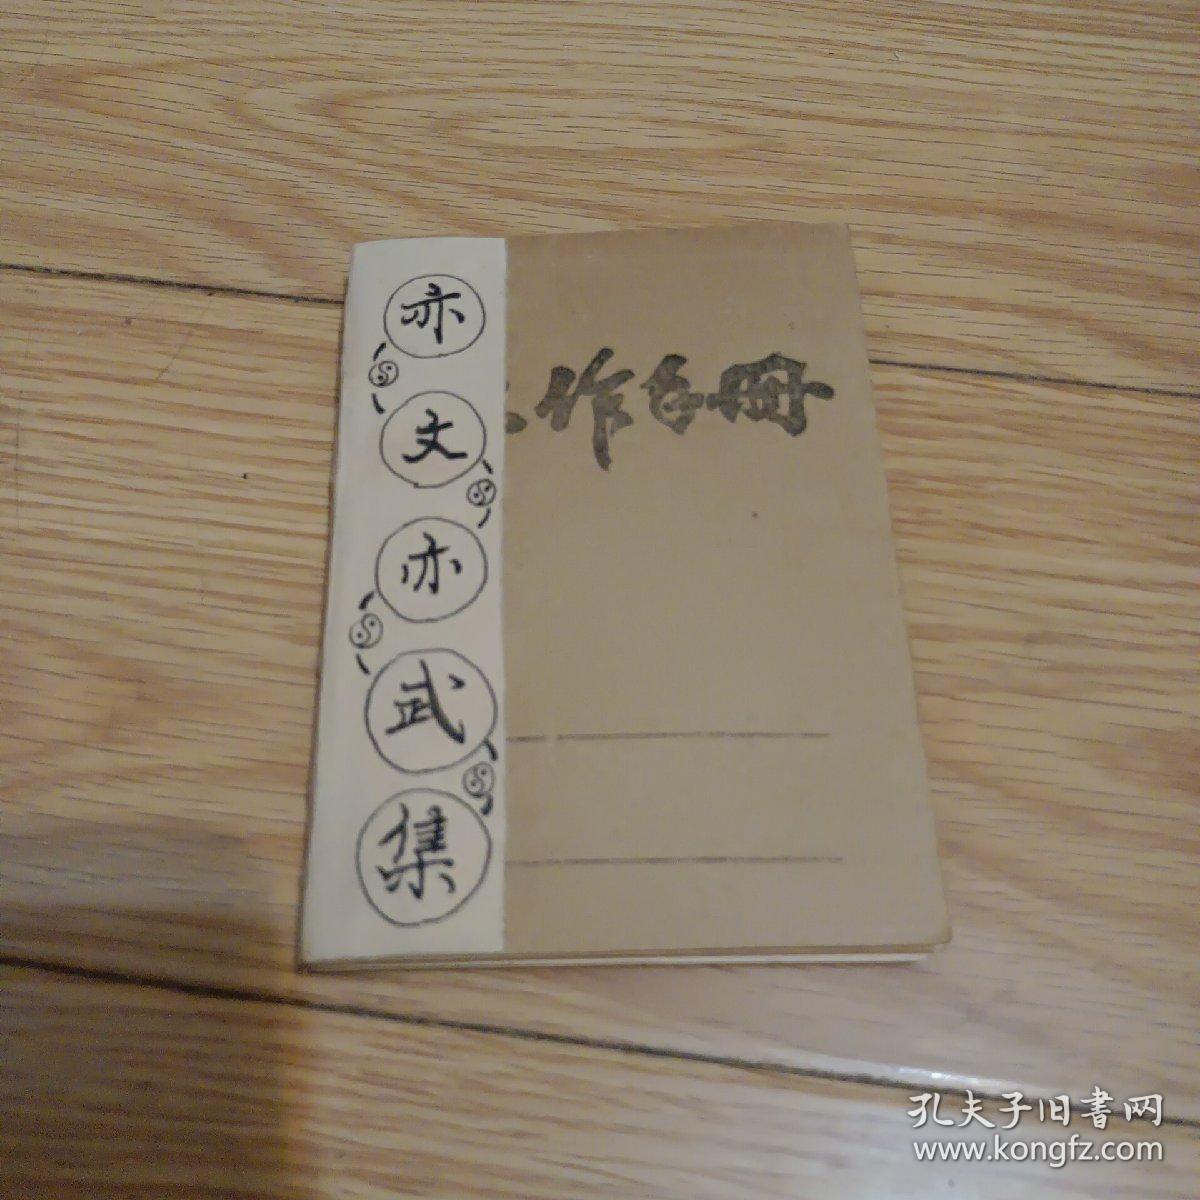 亦
文
亦
武
集
作手册
孔夫子旧书网
www.kongfz.com